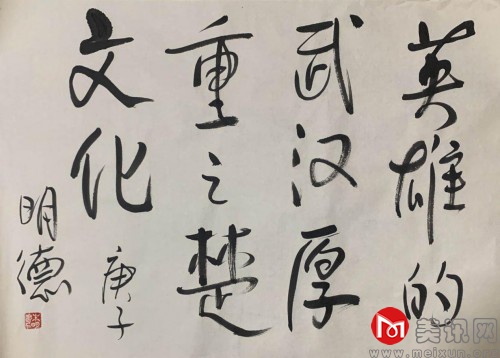 英雄的
武汉厚
重之楚
文化
庚子
明德
美讯网
www.meixun.com